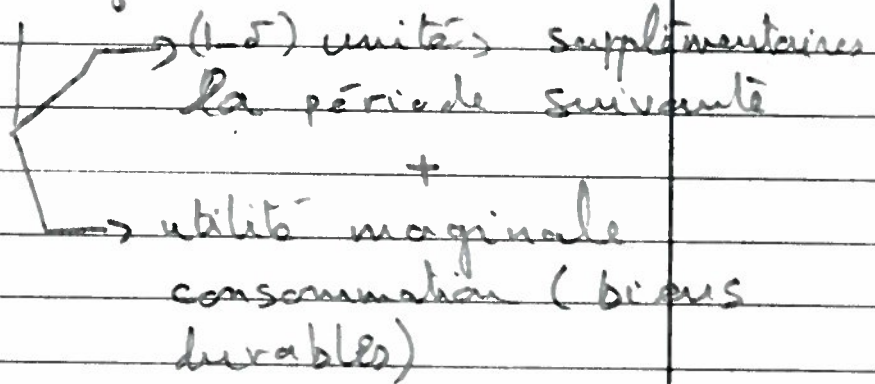 → (1-δ) unités supplémentaires
la période suivante
+
→ utilité maginale
consommation (biens
durables)